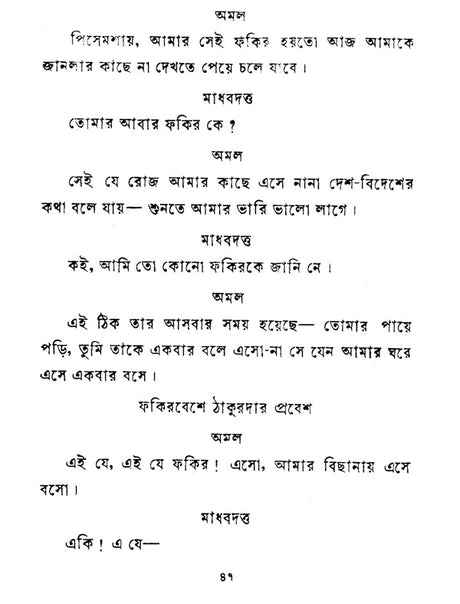 অমল
পিসেমশায়, আমার সেই ফকির হয়তো আজ আমাকে
জানলার কাছে না দেখতে পেয়ে চলে যাবে।
মাধবদত্ত
তোমার আবার ফকির কে ?
অমল
সেই যে রোজ আমার কাছে এসে নানা দেশ-বিদেশের
কথা বলে যায়— শুনতে আমার ভারি ভালো লাগে।
মাধবদত্ত
কই, আমি তো কোনো ফকিরকে জানি নে।
অমল
এই ঠিক তার আসবার সময় হয়েছে— তোমার পায়ে
পড়ি, তুমি তাকে একবার বলে এসো-না সে যেন আমার ঘরে
এসে একবার বসে।
ফকিরবেশে ঠাকুরদার প্রবেশ
অমল
এই যে, এই যে ফকির ! এসো, আমার বিছানায় এসে
বসো।
মাধবদত্ত
একি ! এ যে—
৪৭